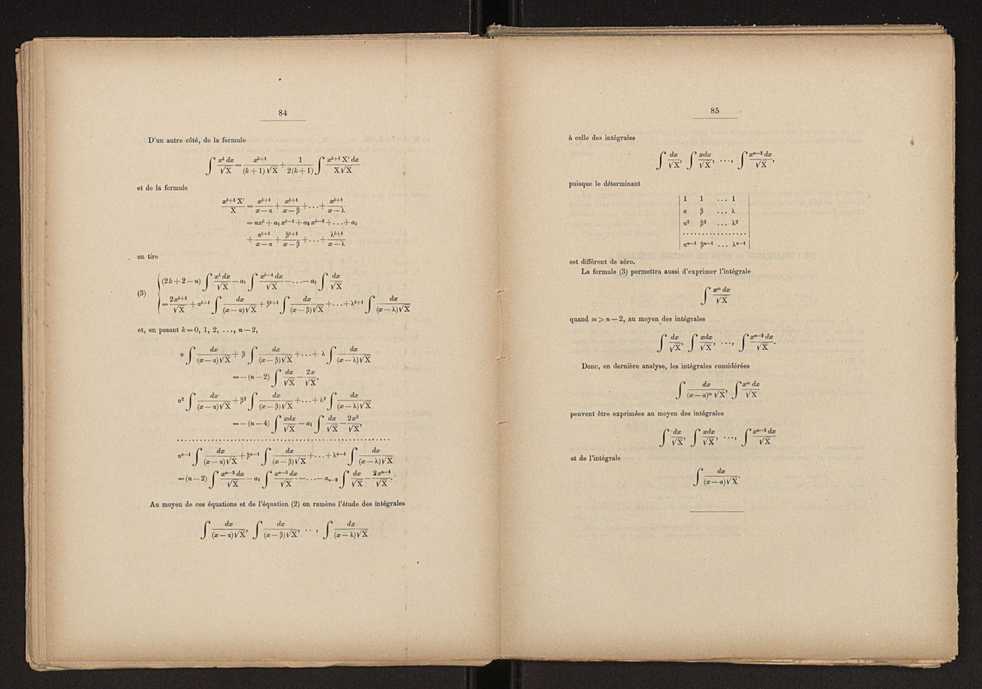 84
D'un autre côté, de la formule
∫ x^k dx / √X = x^{k+1} / (k+1)√X + 1 / 2(k+1) ∫ x^{k+1} X' dx / X√X
et de la formule
x^{k+1} X' / X = x^{k+1} / (x—α) + x^{k+1} / (x—β) + ... + x^{k+1} / (x—λ)
= nx^k + a₁ x^{k-1} + a₂ x^{k-2} + ... + a_k
+ α^{k+1} / (x—α) + β^{k+1} / (x—β) + ... + λ^{k+1} / (x—λ)
on tire
(3) { (2k+2—n) ∫ x^k dx / √X — a₁ ∫ x^{k-1} dx / √X — ... — a_k ∫ dx / √X
= 2x^{k+1} / √X + α^{k+1} ∫ dx / (x—α)√X + β^{k+1} ∫ dx / (x—β)√X + ... + λ^{k+1} ∫ dx / (x—λ)√X
et, en posant k=0, 1, 2, ..., n—2,
α ∫ dx / (x—α)√X + β ∫ dx / (x—β)√X + ... + λ ∫ dx / (x—λ)√X
= —(n—2) ∫ dx / √X — 2x / √X,
α² ∫ dx / (x—α)√X + β² ∫ dx / (x—β)√X + ... + λ² ∫ dx / (x—λ)√X
= —(n—4) ∫ xdx / √X — a₁ ∫ dx / √X — 2x² / √X,
. . . . . . . . . . . . . . . . . . . . . . . . . . . . . .
α^{n-1} ∫ dx / (x—α)√X + β^{n-1} ∫ dx / (x—β)√X + ... + λ^{n-1} ∫ dx / (x—λ)√X
= (n—2) ∫ x^{n-2} dx / √X — a₁ ∫ x^{n-3} dx / √X — ... — a_{n-2} ∫ dx / √X — 2x^{n-1} / √X.
Au moyen de ces équations et de l'équation (2) on ramène l'étude des intégrales
∫ dx / (x—α)√X, ∫ dx / (x—β)√X, ..., ∫ dx / (x—λ)√X
85
à celle des intégrales
∫ dx / √X, ∫ xdx / √X, ..., ∫ x^{n-2} dx / √X,
puisque le déterminant
| 1 1 ... 1 |
| α β ... λ |
| α² β² ... λ² |
| . . . . . . . . . . . . |
| α^{n-1} β^{n-1} ... λ^{n-1} |
est différent de zéro.
La formule (3) permettra aussi d'exprimer l'intégrale
∫ x^m dx / √X
quand m > n—2, au moyen des intégrales
∫ dx / √X, ∫ xdx / √X, ..., ∫ x^{n-2} dx / √X.
Donc, en dernière analyse, les intégrales considérées
∫ dx / (x—a)^m √X, ∫ x^m dx / √X
peuvent être exprimées au moyen des intégrales
∫ dx / √X, ∫ xdx / √X, ..., ∫ x^{n-2} dx / √X
et de l'intégrale
∫ dx / (x—a)√X.